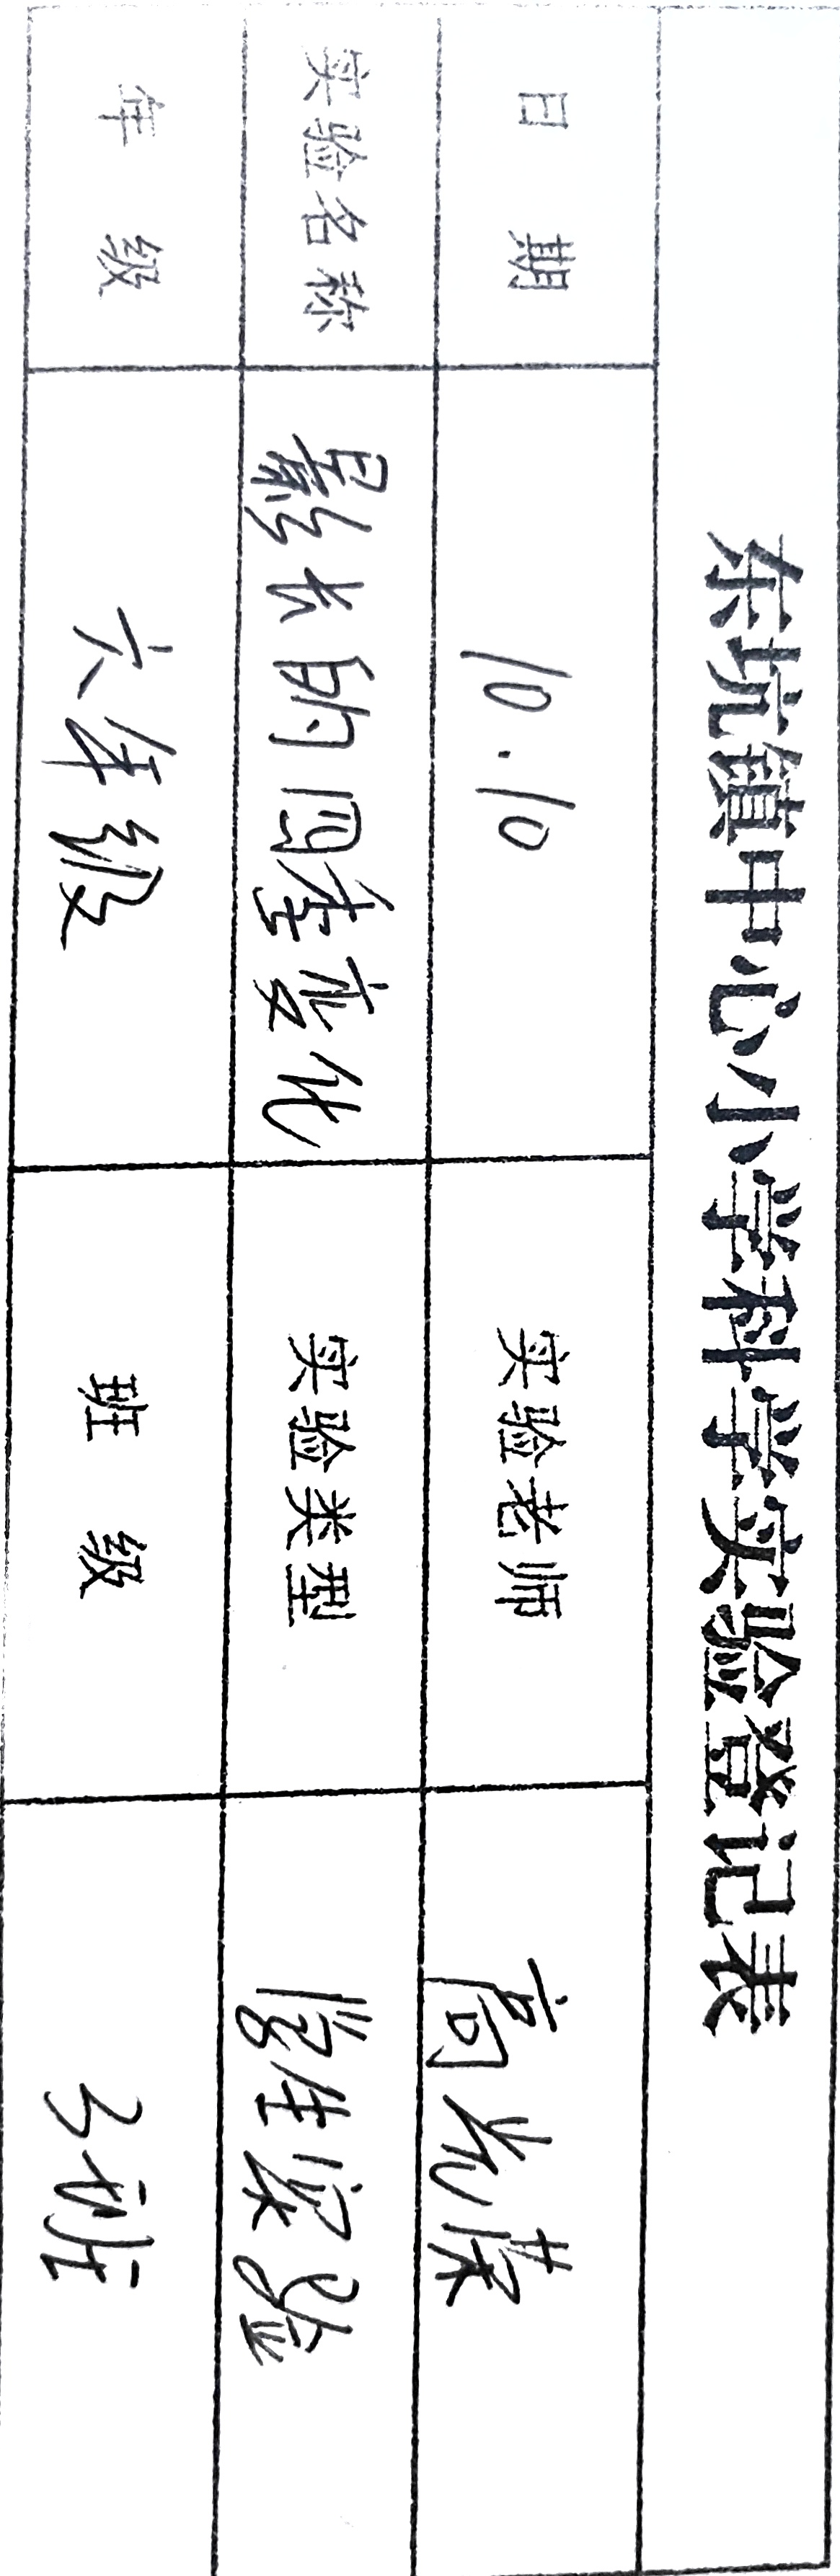 东坑镇中心小学科学实验登记表
日 期 10.10 实验老师
实验名称 影长的四季变化 实验类型 学生实验
年 级 六年级 班 级 3班